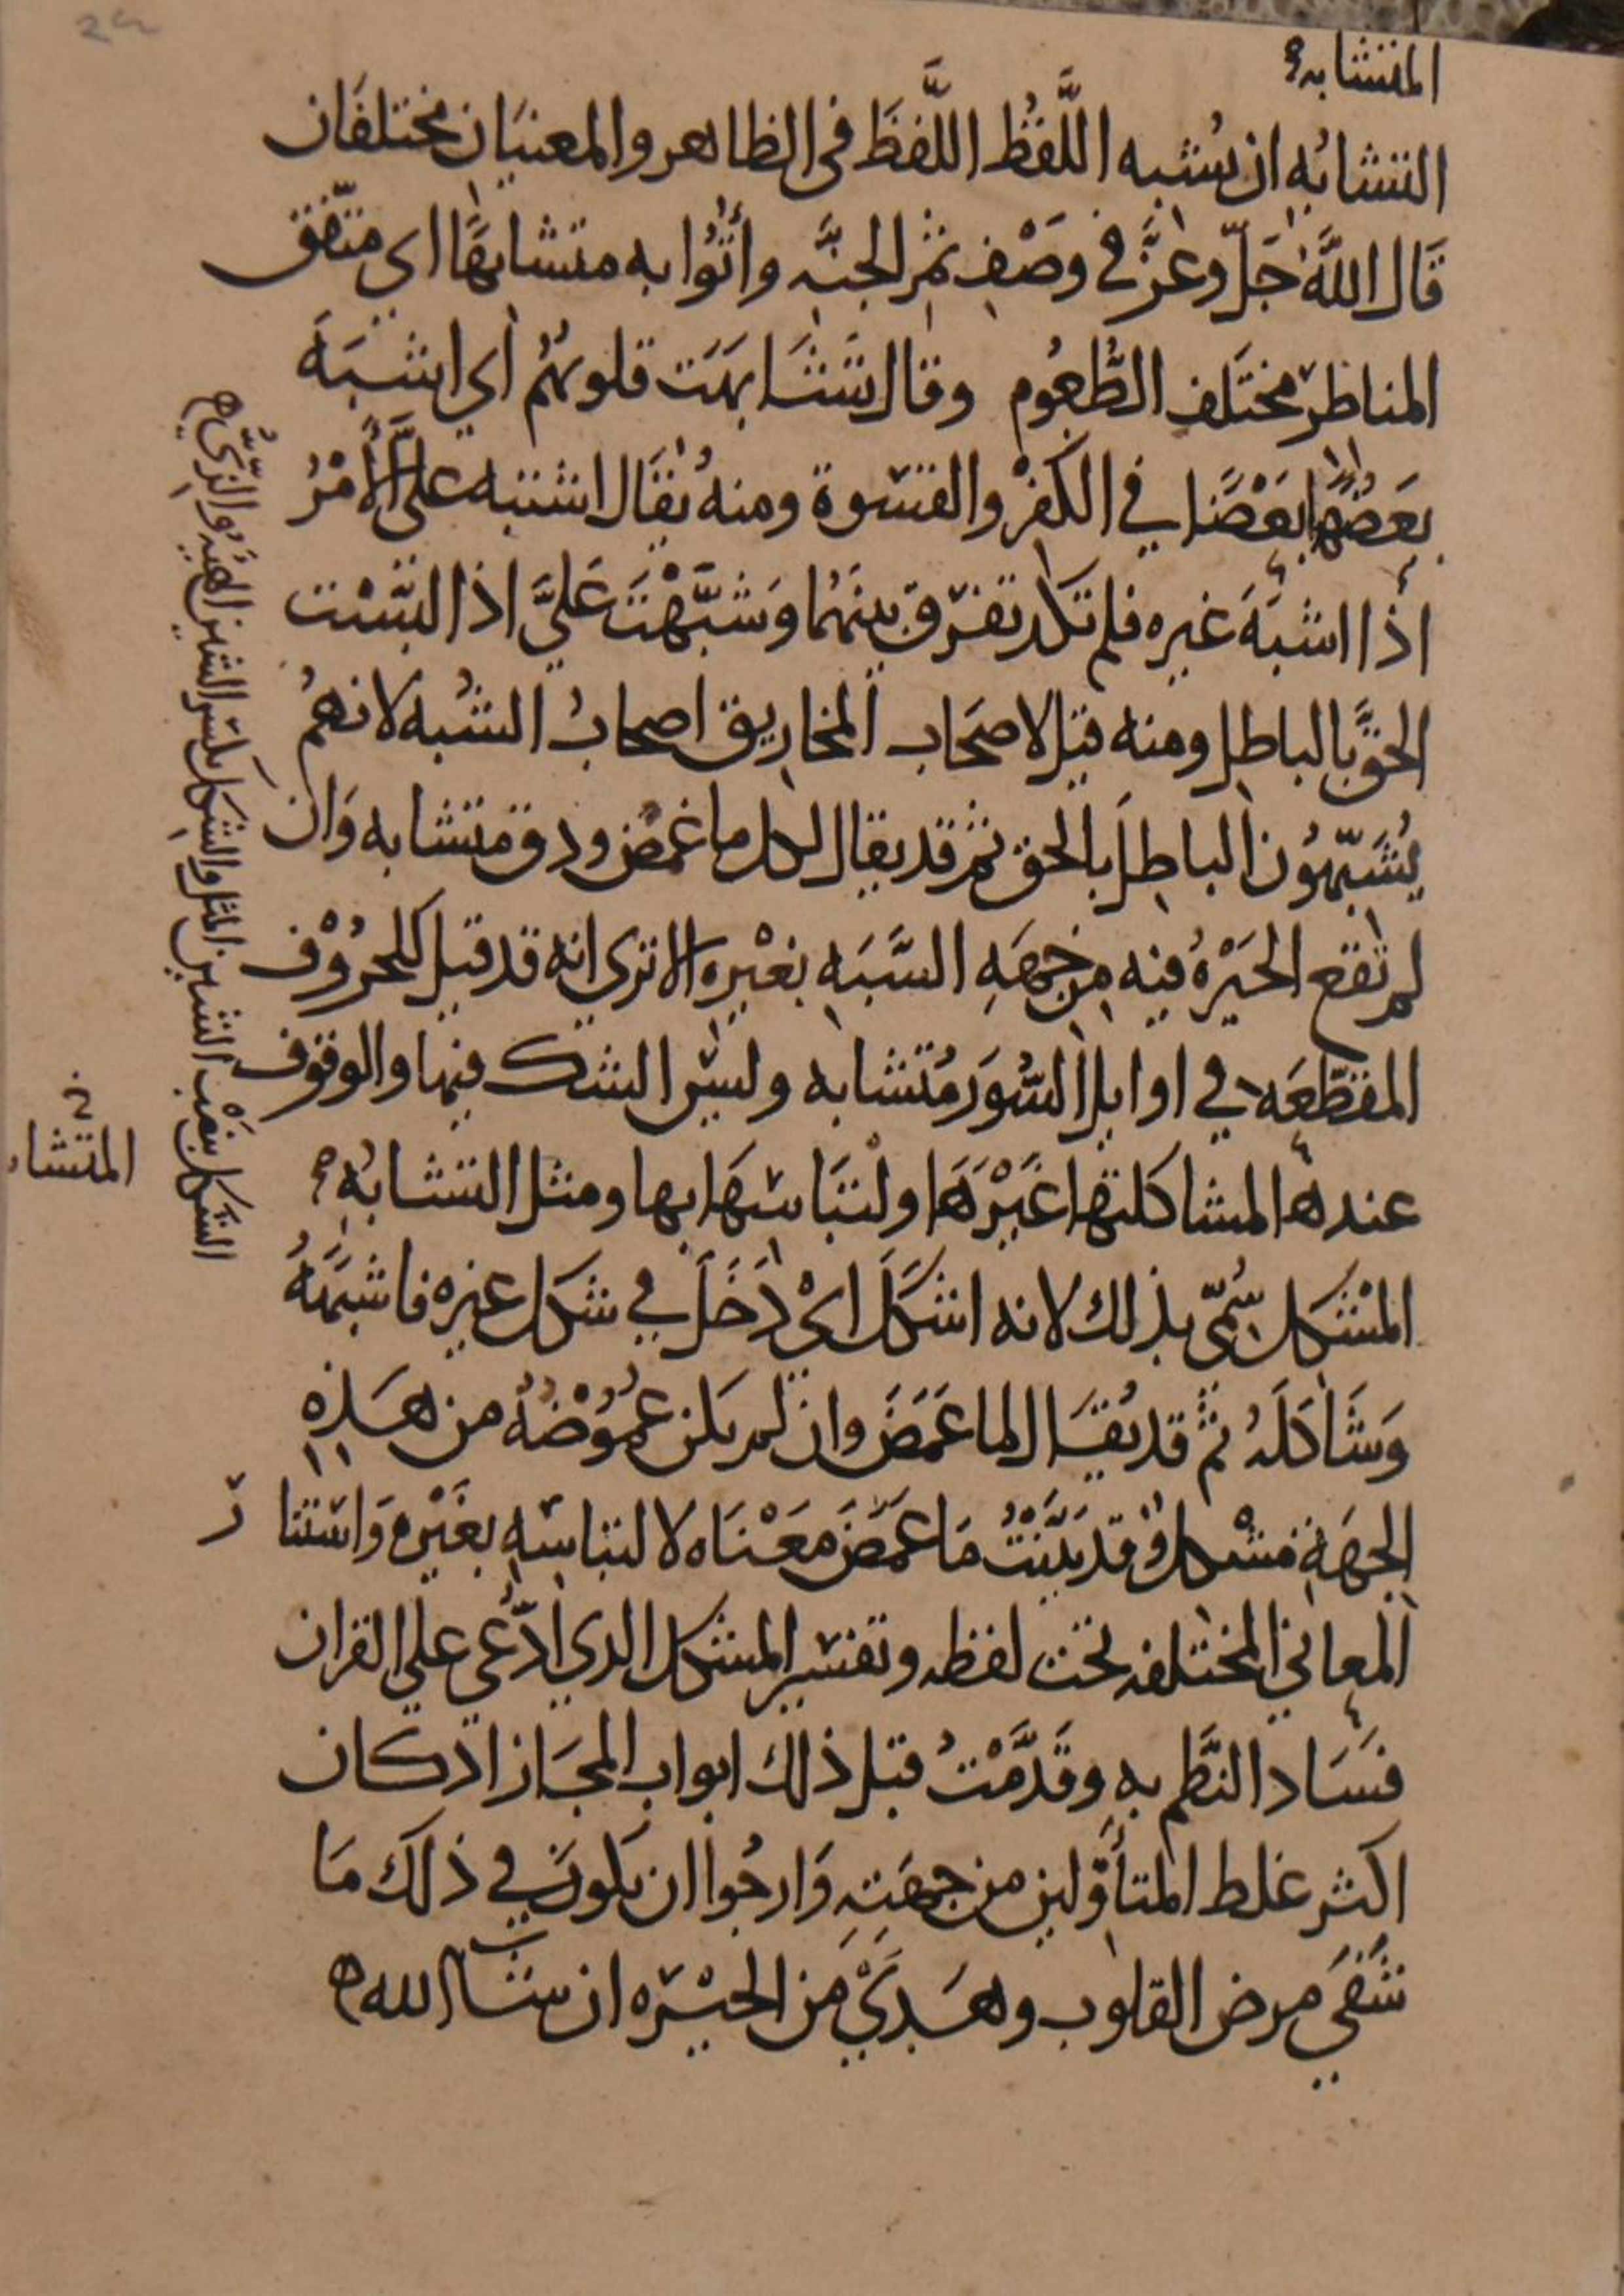 المتشابه
التشابُه ان يُشبه اللَّفظُ اللَّفظَ في الظاهر والمعنيَان مختلفَان
قَال اللَّه جَلّ وعزَّ في وصْفِ ثمَر الجنَّه وأتُوا به متشابهًا اي متّفق
المناظر مختَلف الطُّعُوم وقال تَشَابهَت قلوبهُم اي اشبَهَ
بعَضُهَا بَعْضًا في الكفْر والقسْوة ومنهُ يقَال اشتبه علىَّ الأمْرُ
اذا اشبَهَ غيره فلم تكَد تفرّق بينهُما وَشبَّهْتَ عَليَّ اذا لبَّسْت
الحقَّ بالباطل ومنه قيل لاصحَاب المخاريق اصحابُ الشُبه لانهمُ
يُشَبّهوُن الباطِلَ بالحق ثم قد يقال لكل ما غمُض ودق متشابه وَان
لم تَقع الحَيْرهُ فيه من جهَهِ الشَّبَه بغيْره الا تري انه قد قيل للحرُوْف
المقطّعَه في اوايل السُّوَر مُتشابه وليسَ الشك فيها والوقوف
عندها لمشاكلتها غَيْرَهَا ولتبَاسهَا بها ومثل التشابُه
المشْكل سُمّي بذلك لانه اشكَلَ ايْ دَخَلَ في شكل غيره فاشبَهَهُ
وَشَاكَلَهُ ثمَّ قد يُقَال لما غَمَضَ وان لم يكن غمُوْضُهُ من هَذِهِ
الجهَهِ مشْكل وقد بيَّنْتُ مَا غمَضَ معْنَاه لالتباسِهِ بغَيْره وَاستتار
المعاني المختلفه تحت لفظه وتفسير المشكل الذي ادُّعي علي القران
فسَاد النَّظم به وقَدَّمْتُ قبل ذلك ابواب المجَاز اذ كان
اكثر غلط المتأوّلين من جهَتِهِ وَارجُوا ان يكون في ذلك مَا
شَفَي مرض القلوب وهَدَيْ من الحيْره ان شا الله
الشَكل بنصْب الشين المثل والشِكل بكسر الشين الهيُه والزِيُّ
خ
المتشا